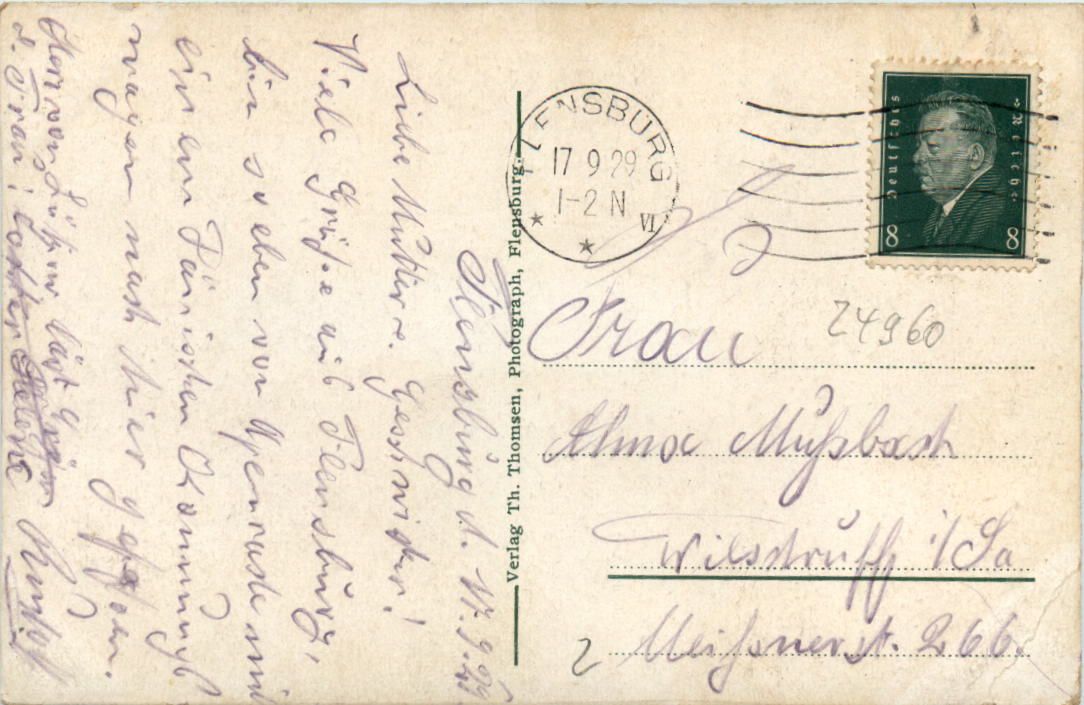 Flensburg d. 17.9.29
Liebe Mutter u. Geschwister!
Viele Grüße aus Flensburg,
bin soeben von Apenrade mit
einem Dänischen
wagen nach hier gefahren.
Herr von
u. Frau
Rudolf
Verlag Th. Thomsen, Photograph, Flensburg.
FLENSBURG
17 9 29
1-2 N
VI
Deutsches Reich
8 8
24960
Frau
Alma Mußbach
Wilsdruff i/Sa
2
Meißnerst. 266.